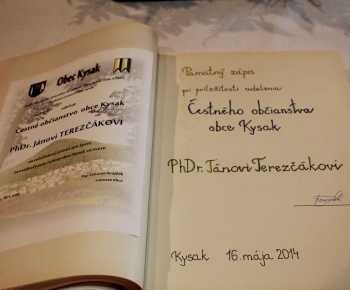 Obec Kysak
Čestné občianstvo obce Kysak
PhDr. Jánovi TEREZČÁKOVI
starosta obce
Pamätný zápis
pri príležitosti udelenia
Čestného občianstva
obce Kysak
PhDr. Jánovi Terezčákovi
Kysak 16. mája 2014